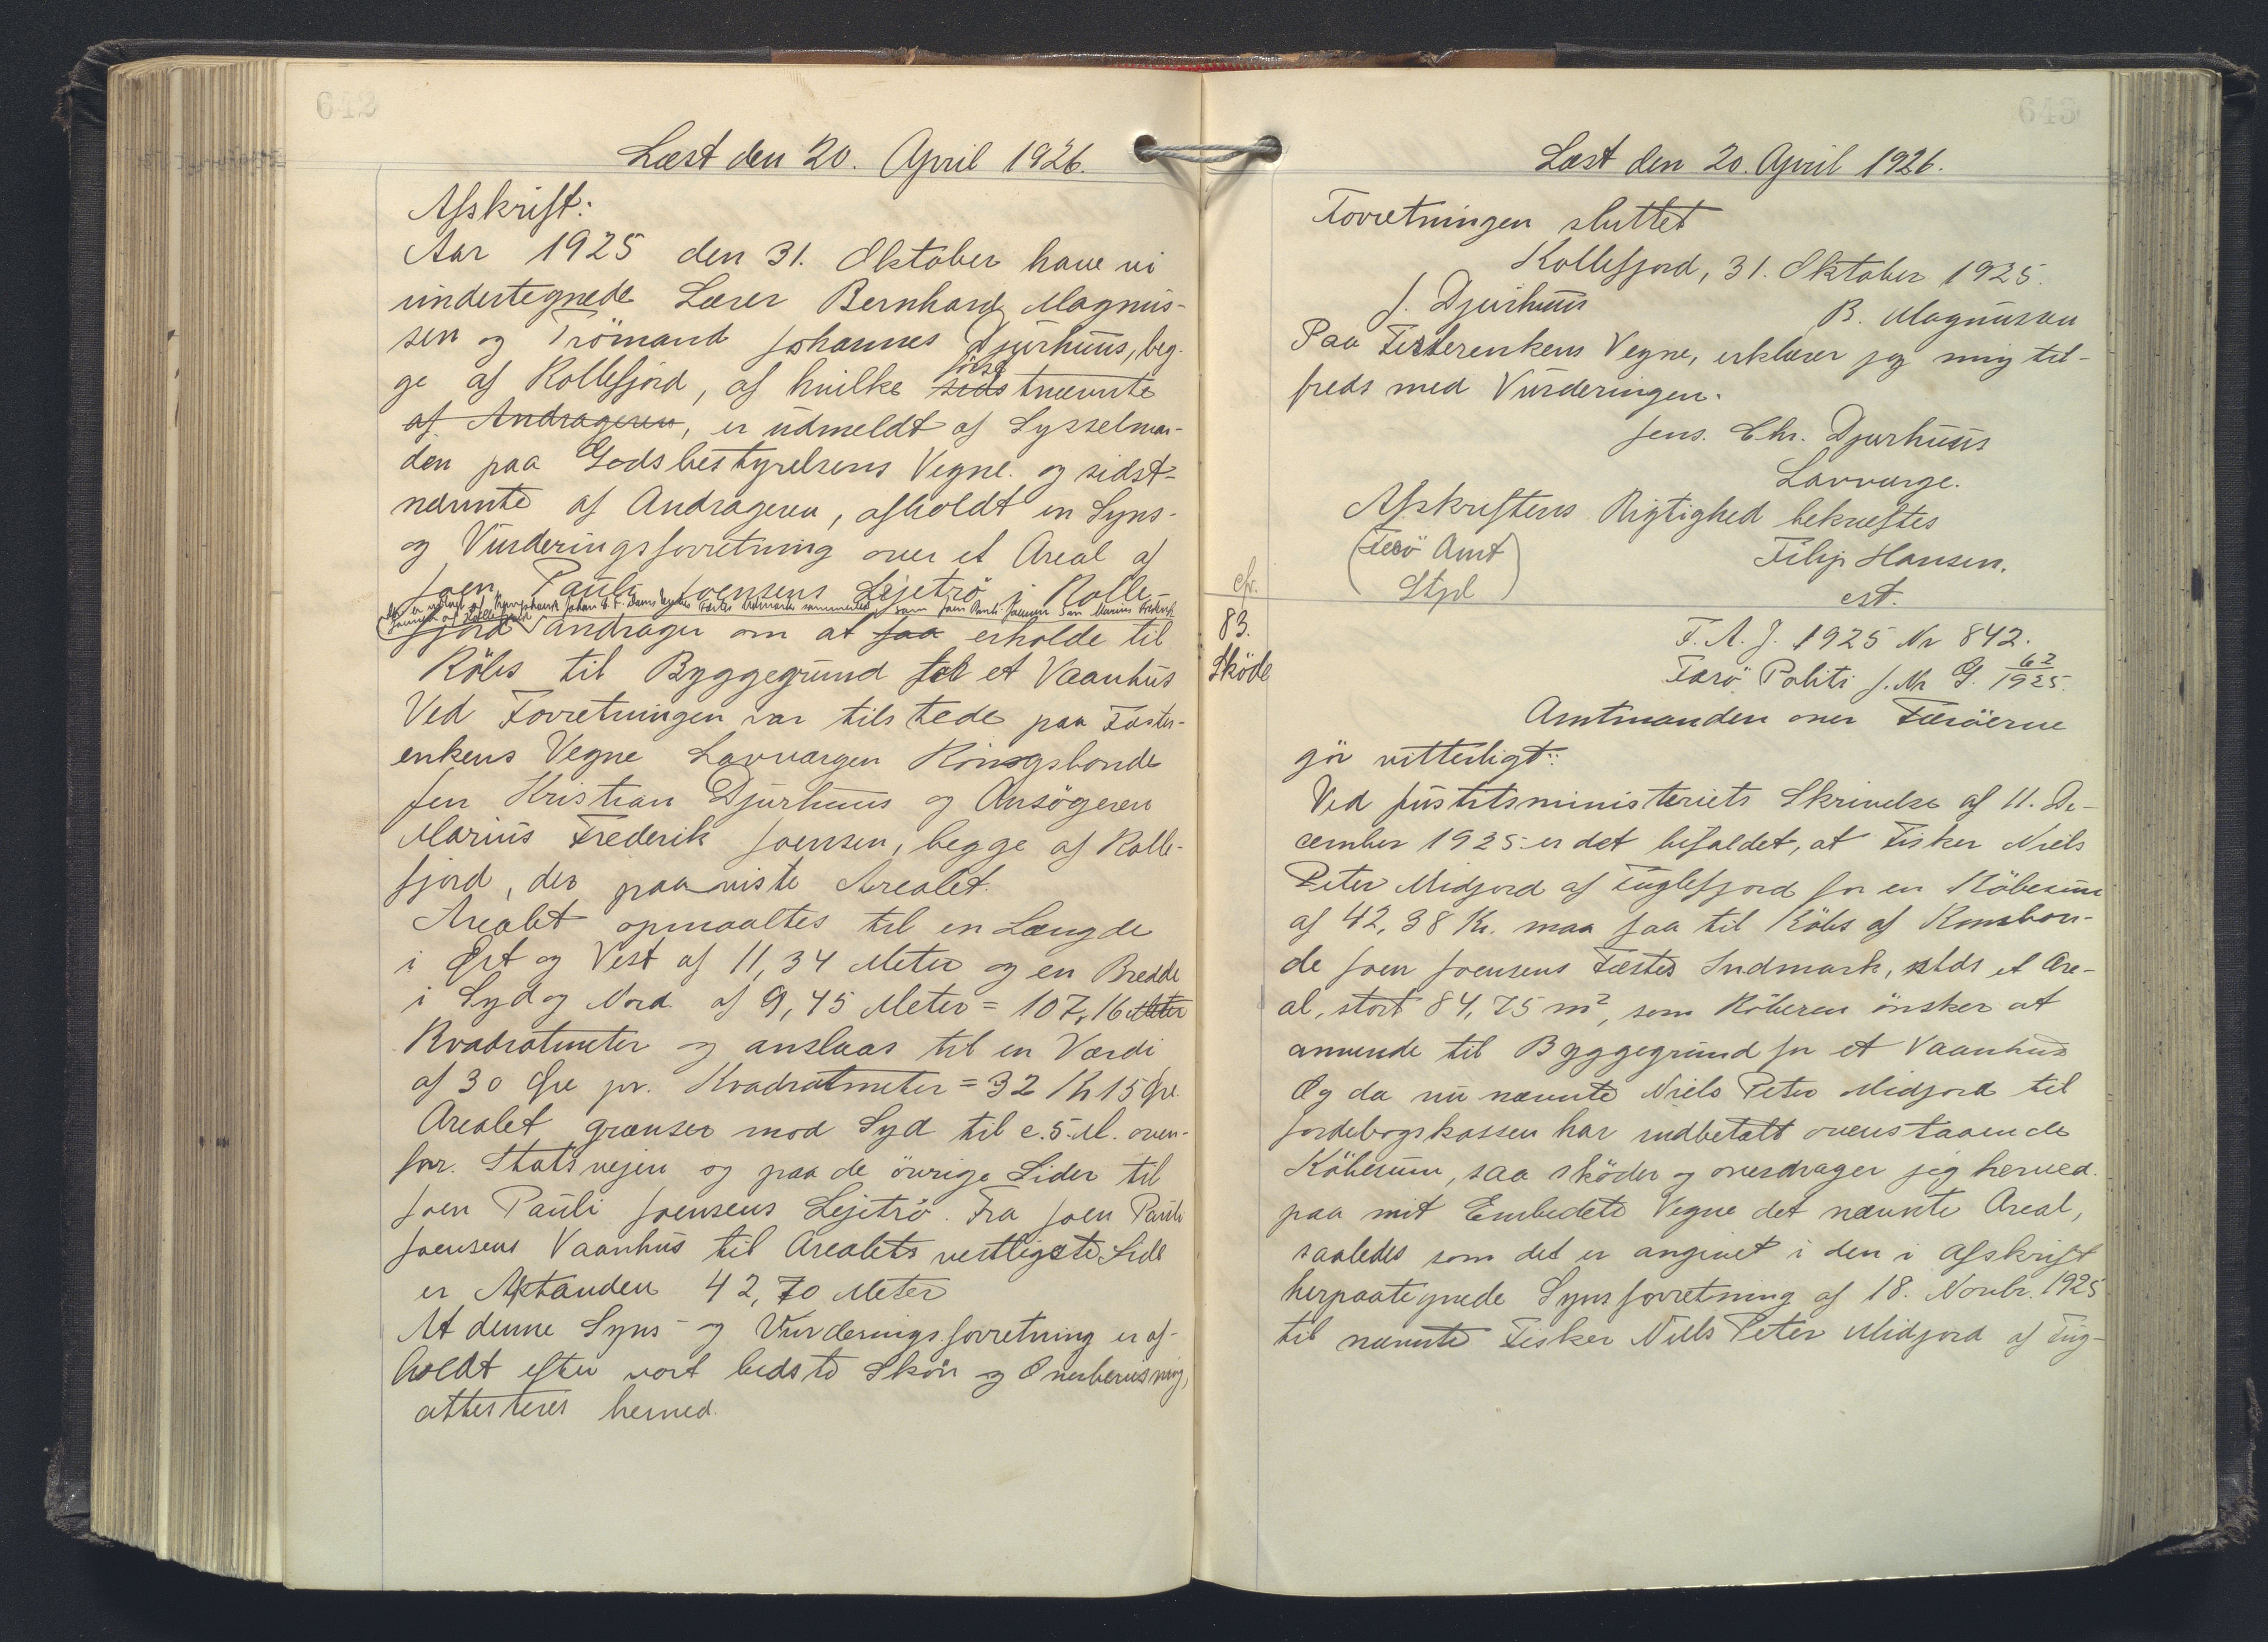 642
Læst den 20. April 1926.
Afskrift:
Aar 1925 den 31. Oktober have vi
undertegnede Lærer Bernhard Magnus-
sen og Trömand Johannes Djurhuus, beg-
ge af Kollefjord, af hvilke sids först nævnte
af Andrageren, er udmeldt af Sysselman-
den paa Godsbestyrelsens Vegne og sidst-
nævnte af Andrageren, afholdt en Syns-
og Vurderingsforretning over et Areal af
Joen Pauli Joensens Lejetrö i Kolle-
der er udlagt af Johan Fæstes Indmark som Joen Pauli Joensens Søn Marius Frederik
Joensen af Kollefjord
fjord andrager om at faa erholde til
Köbs til Byggegrund for et Vaanhus
Ved Forretningen var tilstede paa Fæster-
enkens Vegne Lavværgen Kongsbonde
Jens Kristian Djurhuus og Ansögeren
Marius Frederik Joensen, begge af Kolle-
fjord, der paaviste Arealet.
Arealet opmaaltes til en Længde
i Øst og Vest af 11,34 Meter og en Bredde
i Syd og Nord af 9,45 Meter = 107,16 Meter
Kvadratmeter og anslaas til en Værdi
af 30 Øre pr. Kvadratmeter = 32 Kr 15 Øre
Arealet grænser mod Syd til c. 5. M. oven-
for Statsvejen og paa de övrige Sider til
Joen Pauli Joensens Lejetrö. Fra Joen Pauli
Joensens Vaanhus til Arealets vestligste Side
er Afstanden 42,70 Meter
At denne Syns- og Vurderingsforretning er af-
holdt efter vort bedste Skön og Overbevisning,
attesteres herved.
643
Læst den 20. April 1926.
Forretningen sluttet
Kollefjord, 31. Oktober 1925.
J. Djurhuus B. Magnussen
Paa Fæsterenkens Vegne, erklærer jeg mig til-
freds med Vurderingen.
Jens. Chr. Djurhuus
Lavværge.
Afskriftens Rigtighed bekræftes
(Færö Amt Filip Hansen.
Stpl) cst.
83.
Sköde
F. A. J. 1925 Nr 842.
Færö Politi J. Nr G. 62/1925.
Amtmanden over Færöerne
gör vitterligt:
Ved Justitsministeriets Skrivelse af 11. De-
cember 1925 er det bifaldet, at Fisker Niels
Peter Midjord af Fuglefjord for en Köbesum
af 42,38 Kr. maa faa til Köbs af Konsbon-
de Joen Joensens Fæstes Indmark, sstds et Are-
al, stort 84,75 m², som Köberen önsker at
anvende til Byggegrund for et Vaanhus
Og da nu nævnte Niels Peter Midjord til
Jordebogskassen har indbetalt ovenstaaende
Köbesum, saa sköder og overdrager jeg herved
paa mit Embedets Vegne det nævnte Areal,
saaledes som det er angivet i den i Afskrift
herpaategnede Synsforretning af 18. Novbr. 1925
til nævnte Fisker Niels Peter Midjord af Fug-